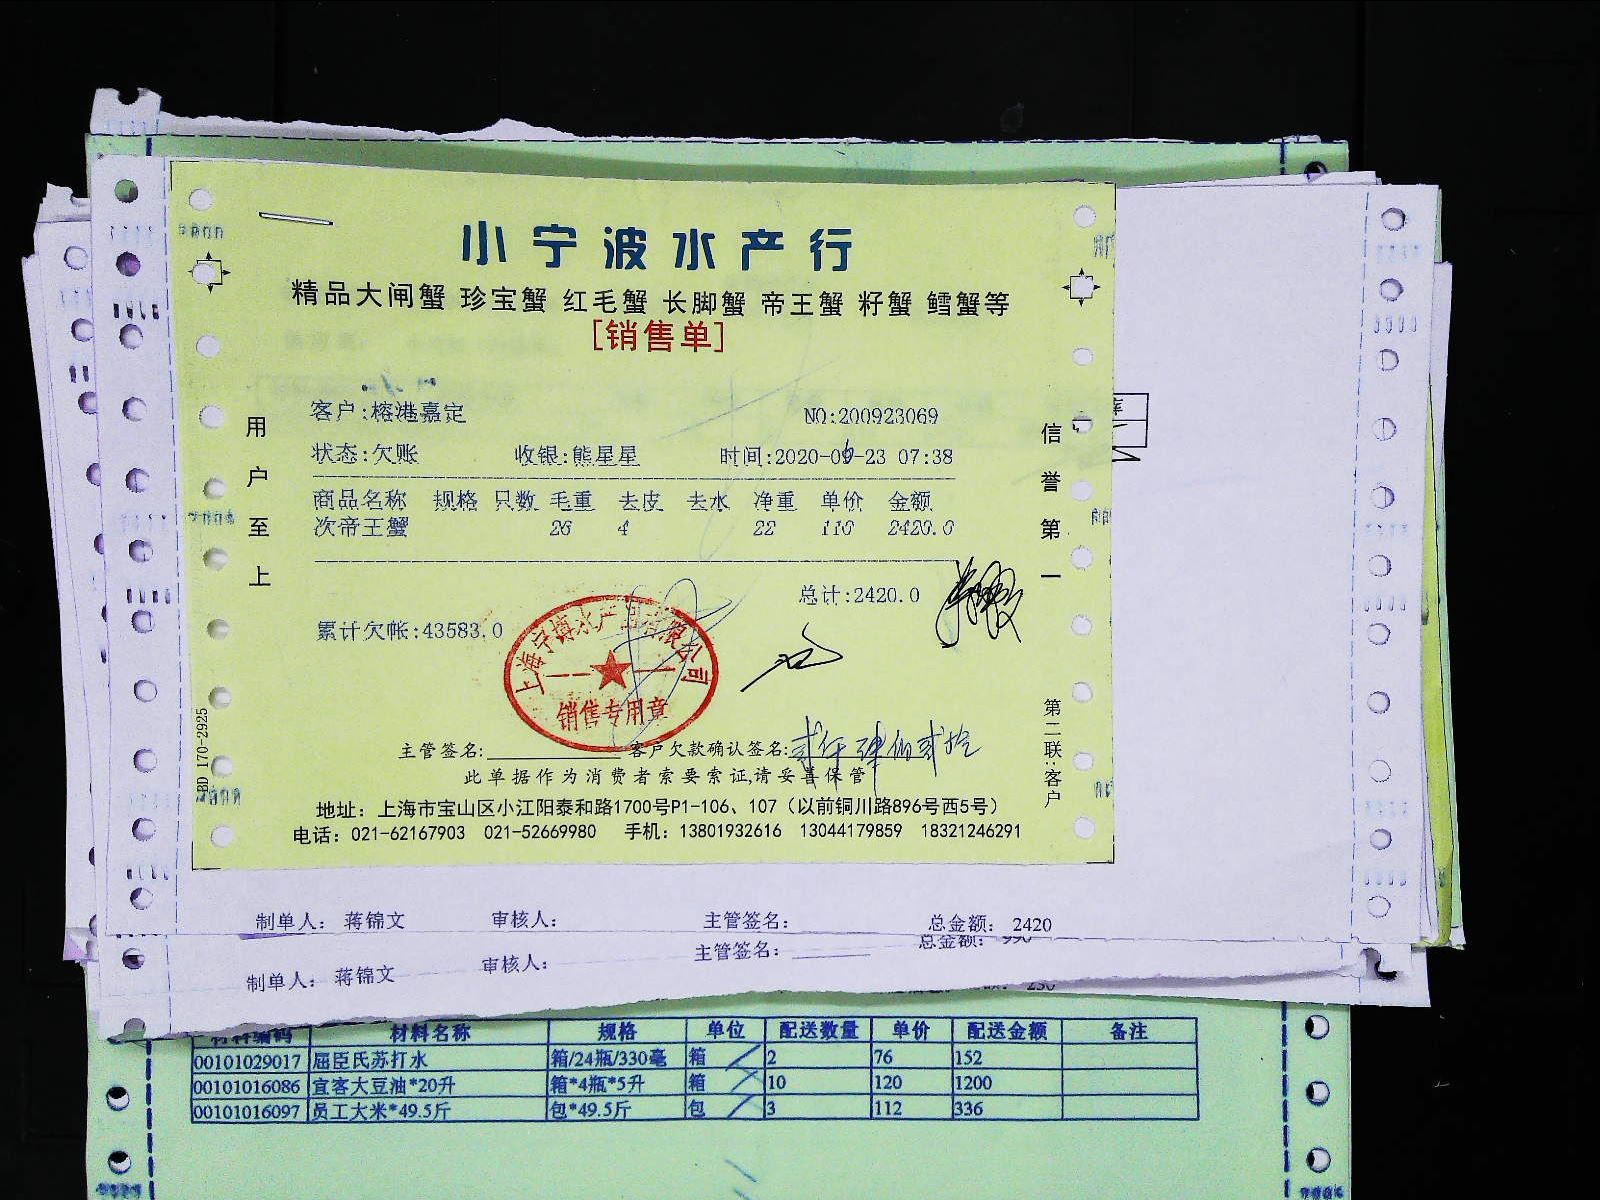 小宁波水产行
精品大闸蟹 珍宝蟹 红毛蟹 长脚蟹 帝王蟹 籽蟹 鳕蟹等
[销售单]
客户:榕港嘉定 NO:200923069
状态:欠账 收银:熊星星 时间:2020-09-23 07:38
商品名称 规格 只数 毛重 去皮 去水 净重 单价 金额
次帝王蟹 26 4 22 110 2420.0
总计:2420.0
累计欠帐:43583.0
上海宁博水产品有限公司
销售专用章
主管签名: 客户欠款确认签名:贰仟肆佰贰拾
此单据作为消费者索要索证,请妥善保管
地址：上海市宝山区小江阳泰和路1700号P1-106、107（以前铜川路896号西5号）
电话：021-62167903 021-52669980 手机：13801932616 13044179859 18321246291
用户至上
信誉第一
第二联:客户
BD 170-2925
制单人： 蒋锦文 审核人： 主管签名： 总金额： 2420
制单人： 蒋锦文 审核人： 主管签名： 总金额： 990
材料编码 材料名称 规格 单位 配送数量 单价 配送金额 备注
00101029017 屈臣氏苏打水 箱/24瓶/330毫 箱 2 76 152
00101016086 宜客大豆油*20升 箱*4瓶*5升 箱 10 120 1200
00101016097 员工大米*49.5斤 包*49.5斤 包 3 112 336